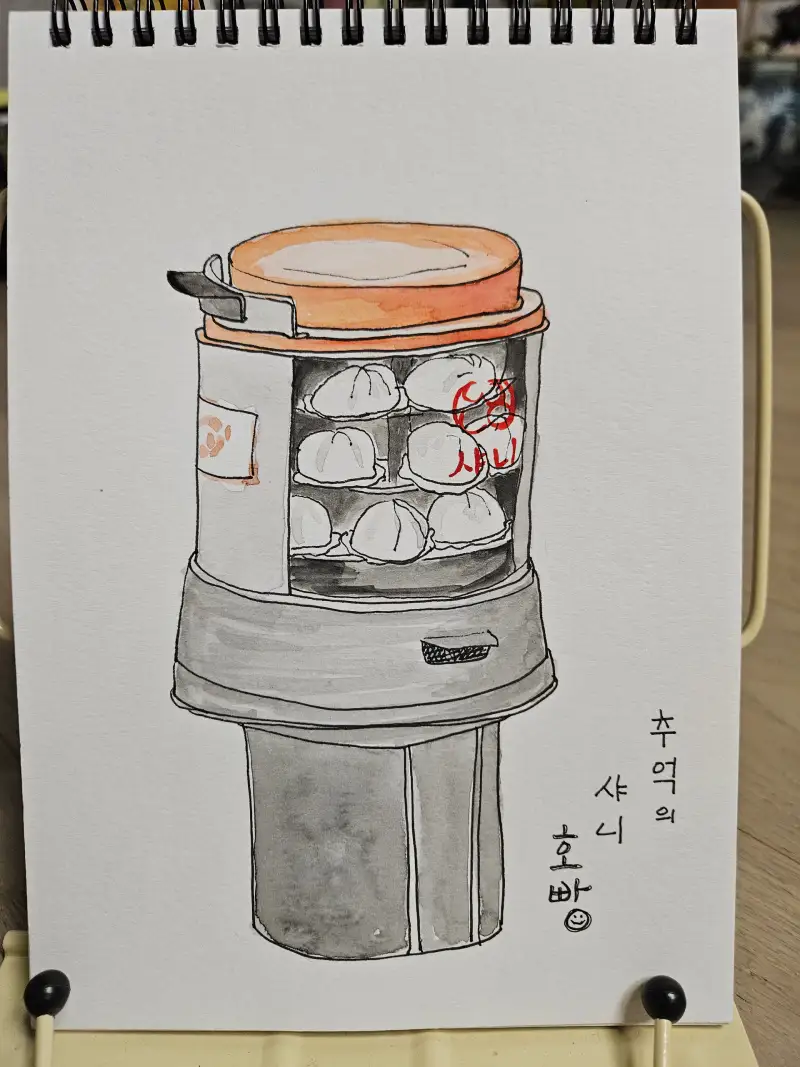 샤니
추억의
샤니
호빵